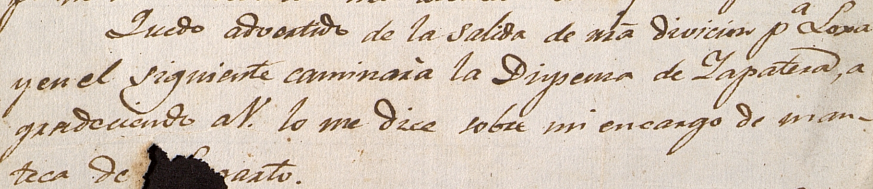 Quedo advertido de la salida de nrã división pª Loxa
y en el siguiente caminará la Dispensa de Zapatera, a
gradeciendo a V. lo me dice sobre mi encargo de man-
teca de arto.